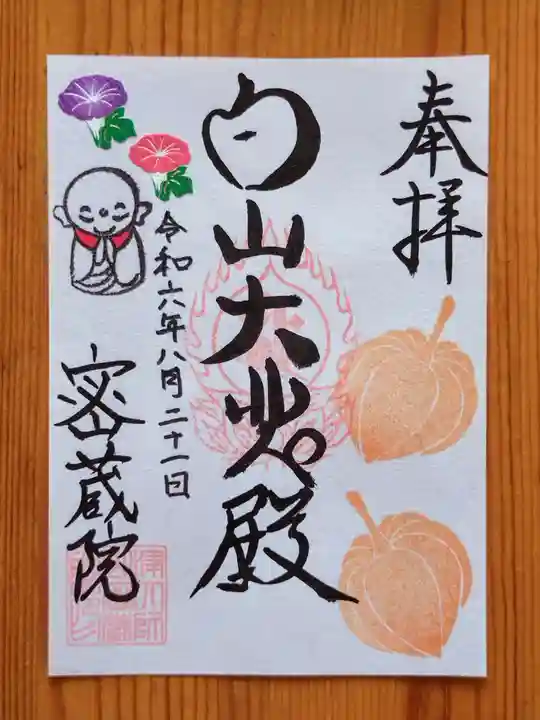 奉拝
白山大悲殿
令和六年八月二十一日
密蔵院